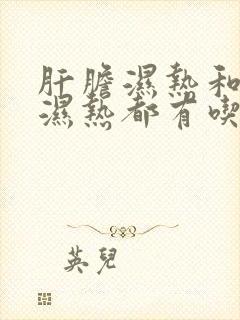 肝膽濕熱和
濕熱都有喫
英兒